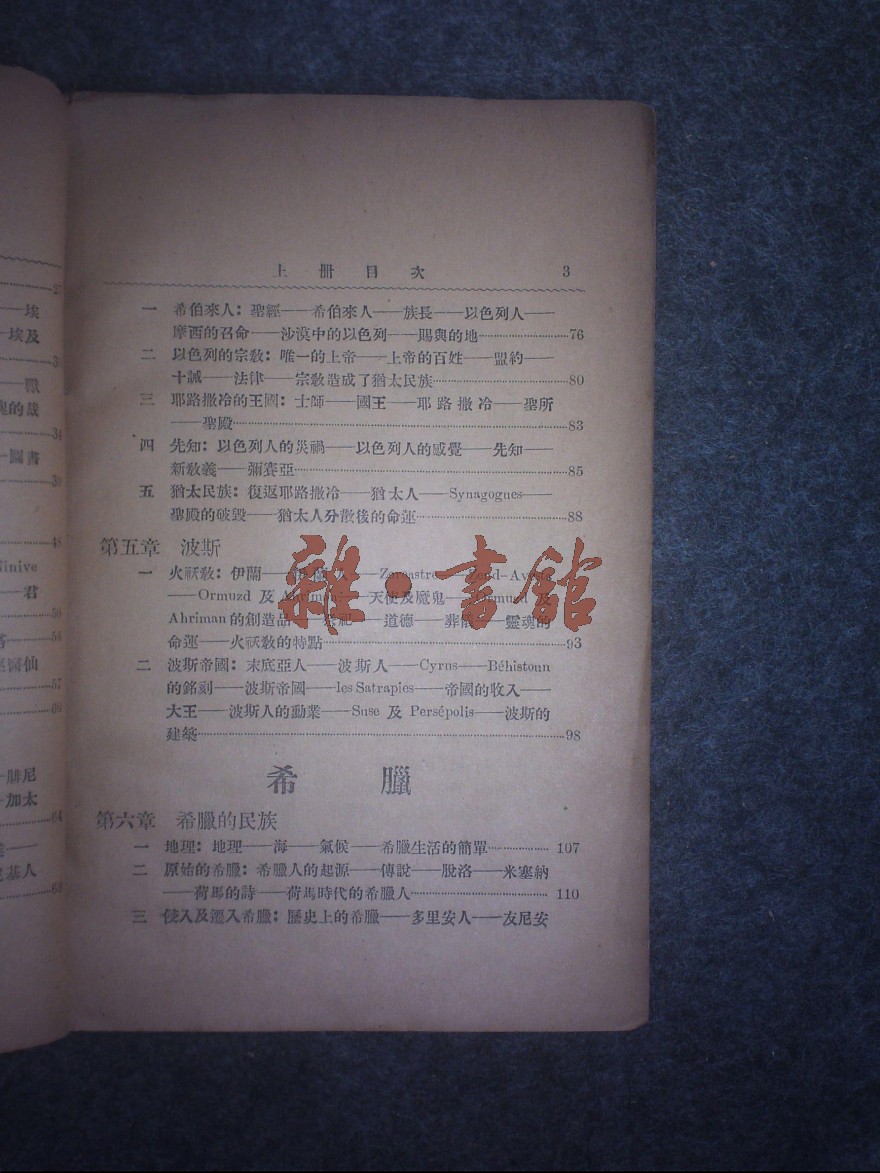 上冊目次 3
一 希伯來人：聖經——希伯來人——族長——以色列人——
摩西的召命——沙漠中的以色列——賜與的地 76
二 以色列的宗教：唯一的上帝——上帝的百姓——盟約——
十誡——法律——宗教造成了猶太民族 80
三 耶路撒冷的王國：士師——國王——耶路撒冷——聖所
——聖殿 83
四 先知：以色列人的災禍——以色列人的感覺——先知——
新敎義——彌賽亞 85
五 猶太民族：復返耶路撒冷——猶太人——Synagogues——
聖殿的破毀——猶太人分散後的命運 88
第五章 波斯
一 火祆敎：伊蘭——伊蘭人——Zoroastre——Zend-Avesta
——Ormuzd 及 Ahriman——天使及魔鬼——Ormuzd 及
Ahriman的創造品——祭祀——道德——葬儀——靈魂的
命運——火祆敎的特點 93
二 波斯帝國：末底亞人——波斯人——Cyrus——Béhistoun
的銘刻——波斯帝國——les Satrapies——帝國的收入——
大王——波斯人的勳業——Suse 及 Persépolis——波斯的
建築 98
希臘
第六章 希臘的民族
一 地理：地理——海——氣候——希臘生活的簡單 107
二 原始的希臘：希臘人的起源——傳說——脫洛——米塞納
——荷馬的詩——荷馬時代的希臘人 110
三 侵入及遷入希臘：歷史上的希臘——多里安人——友尼安
雜·書館
27
埃
埃及
34
圖書
39
48
Ninive
君
50
54
57
60
腓尼
加太
64
基人
68